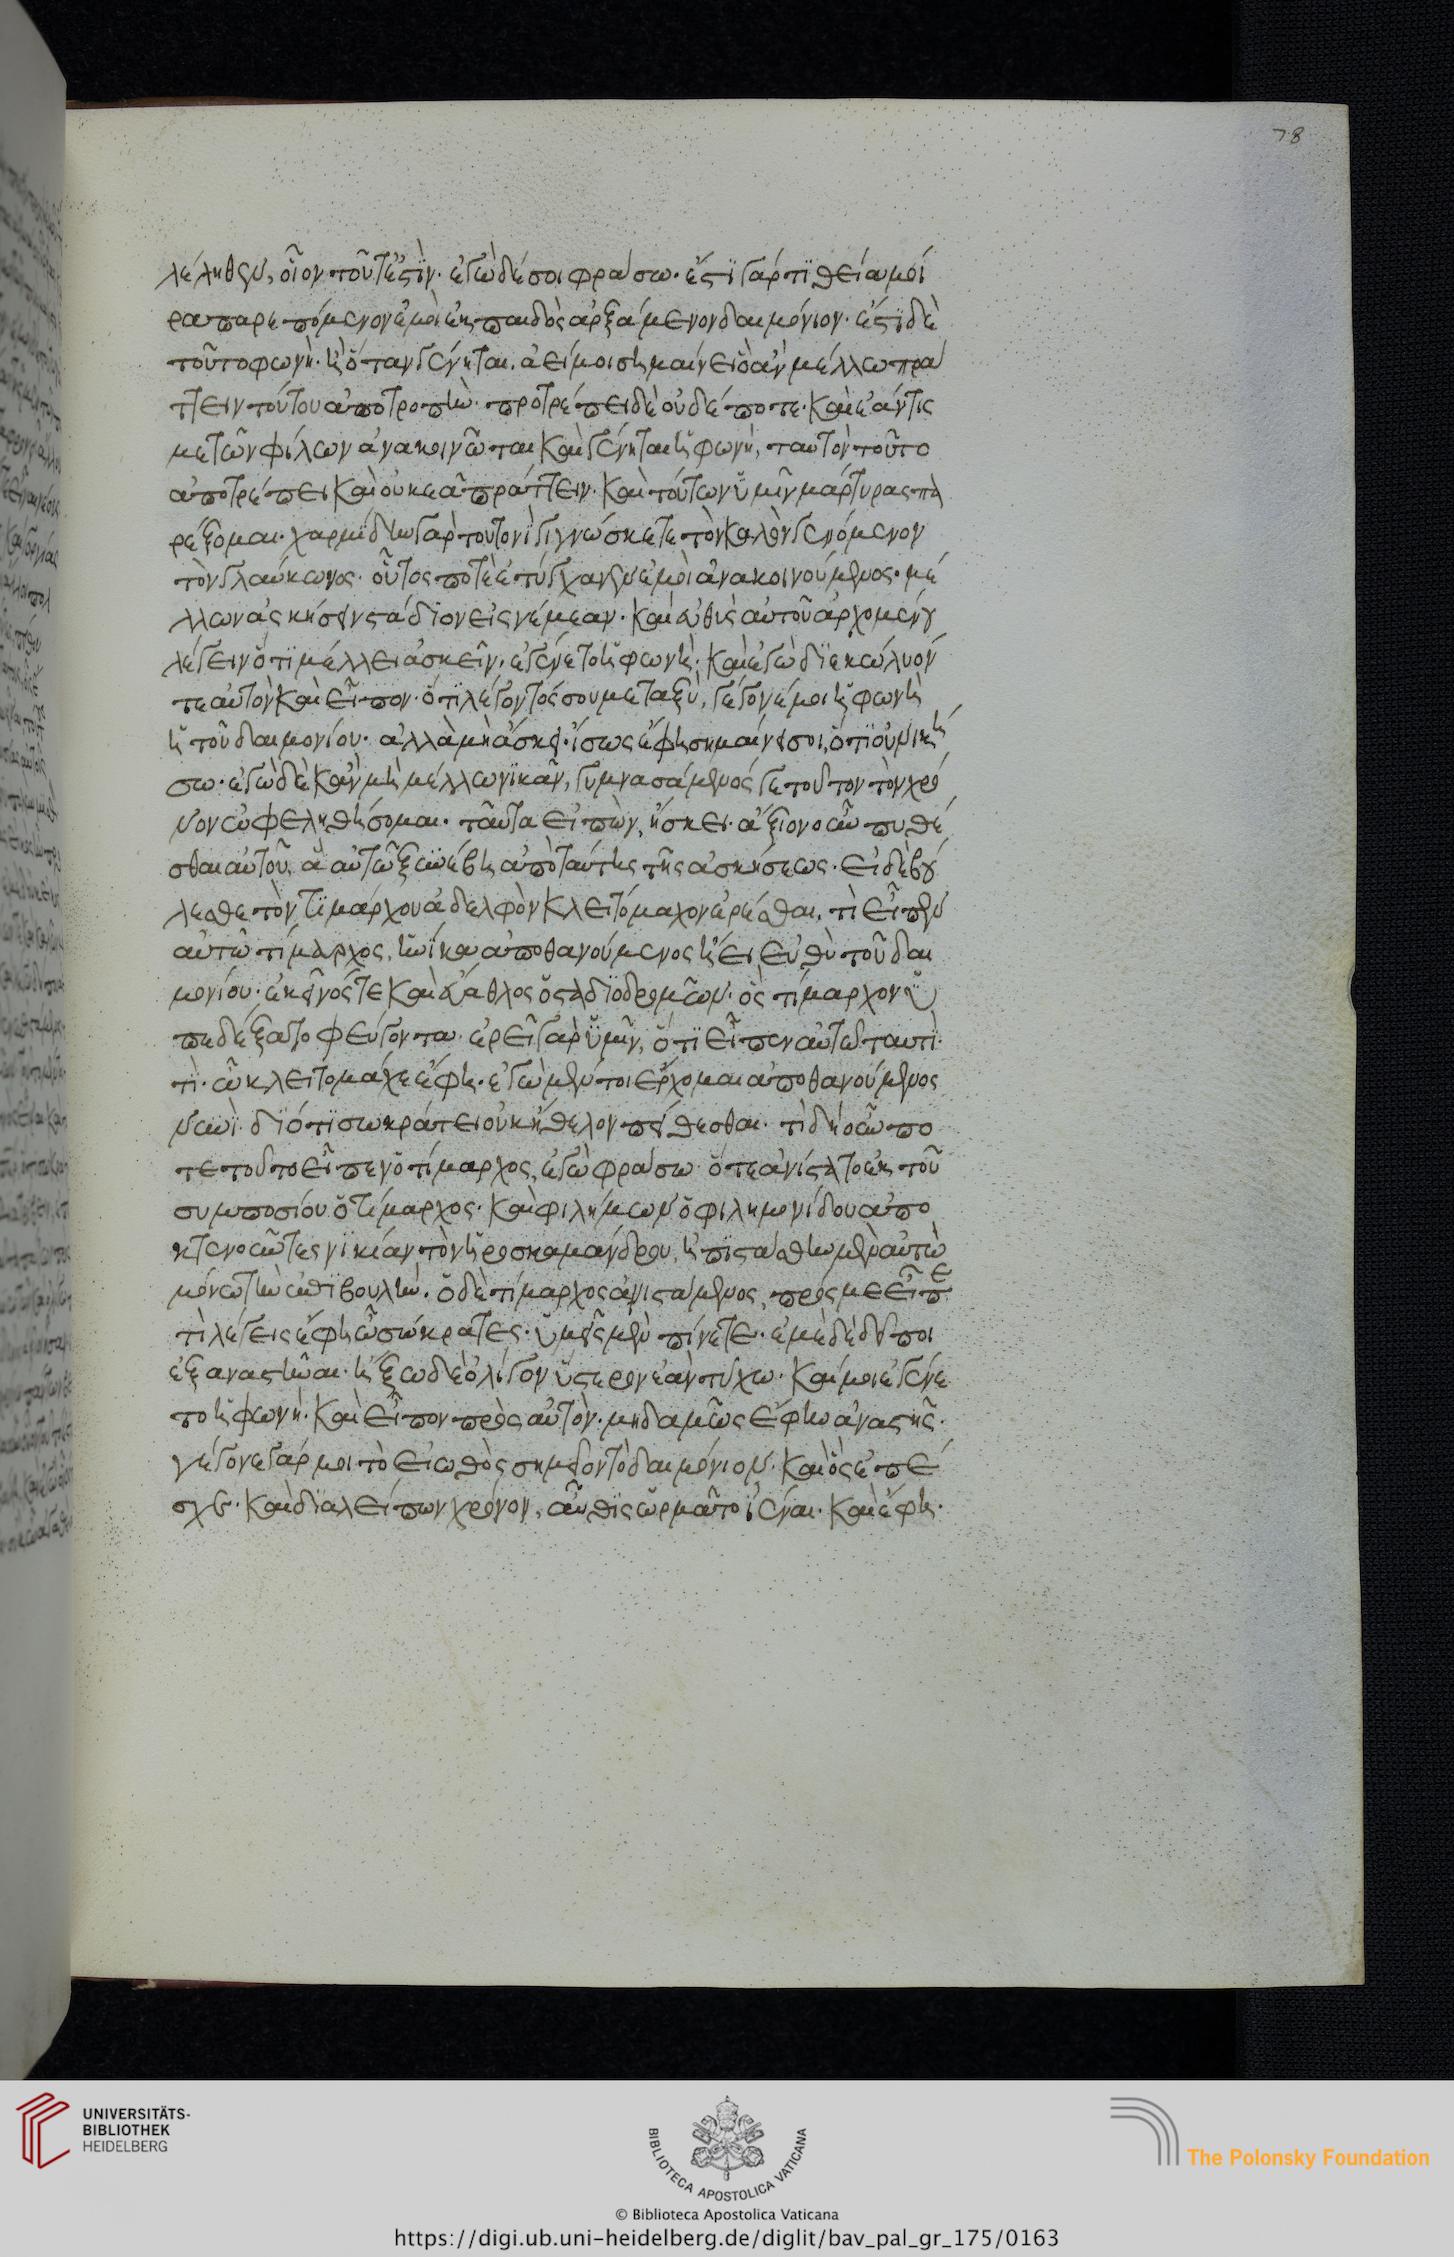 78
λέληθεν, οἷον τοῦτ' ἐστὶν. ἐγὼ δέ σοι φράσω. ἔστι γάρ τι θείᾳ μοί
ρᾳ παρεπόμενον ἐμοὶ ἐκ παιδὸς ἀρξάμενον δαιμόνιον. ἔστι δὲ
τοῦτο φωνὴ. ἣ ὅταν γένηται, ἀεί μοι σημαίνει ὃ ἂν μέλλω πρά
ττειν τούτου ἀποτροπὴν. προτρέπει δὲ οὐδέποτε. καὶ ἐάν τις
με τῶν φίλων ἀνακοινῶται καὶ γένηται ἡ φωνὴ, ταυτὸν τοῦτο
ἀποτρέπει καὶ οὐκ ἐᾶ πράττειν. καὶ τούτων ὑμῖν μάρτυρας πα
ρέξομαι. χαρμίδην γὰρ τουτονὶ γιγνώσκετε τὸν καλὸν γενόμενον
τὸν γλαύκωνος. οὗτος ποτὲ ἐτύγχανεν ἐμοὶ ἀνακοινούμενος. μέ
λλων ἀσκήσειν στάδιον εἰς νέμεαν. καὶ εὐθὺς αὐτοῦ ἀρχομένου
λέγειν ὅτι μέλλει ἀσκεῖν, ἐγένετο ἡ φωνὴ. καὶ ἐγὼ διεκώλυόν
τε αὐτὸν καὶ εἶπον. ὅτι λέγοντός σου μεταξὺ, γέγονέ μοι ἡ φωνὴ
ἡ τοῦ δαιμονίου. ἀλλὰ μὴ ἄσκει. ἴσως ἔφη σημαίνει σοι, ὅτι οὐ νική
σω. ἐγὼ δὲ κἂν μὴ μέλλω νικᾶν, γυμνασάμενός γε τοῦτον τὸν χρό
νον ὠφεληθήσομαι. ταῦτα εἰπὼν, ἤσκει. ἄξιον οὖν πυθέ
σθαι αὐτοῦ, ἃ αὐτῶ ξυνέβη ἀπὸ ταύτης τῆς ἀσκήσεως. εἰ δὲ βού
λεσθε τὸν τιμάρχου ἀδελφὸν κλειτόμαχον ἐρέσθαι, τὶ εἶπεν
αὐτῶ τίμαρχος, ἡνίκα ἀποθανούμενος ἤει εὐθὺ τοῦ δαι
μονίου. ἐκεῖνός τε καὶ εὔαθλος ὁ σταδιοδρομῶν. ὃς τίμαρχον ὑ
πεδέξατο φεύγοντα. ἐρεῖ γὰρ ὑμῖν, ὅτι εἶπεν αὐτῶ ταυτὶ.
τὶ. ὦ κλειτόμαχε ἔφη. ἐγὼ μέν τοι ἔρχομαι ἀποθανούμενος
νυνὶ. διότι σωκράτει οὐκ ἤθελον πείθεσθαι. τὶ δὴ οὖν πο
τε τοῦτο εἶπεν ὁ τίμαρχος, ἐγὼ φράσω. ὅτε ἀνίστατο ἐκ τοῦ
συμποσίου ὁ τίμαρχος. καὶ φιλήμων ὁ φιλημονίδου ἀπο
κτενοῦντες νικίαν τὸν ἡροσκαμάνδρου, ἠπιστάσθην μὲν αὐτὼ
μόνω τὴν ἐπιβουλὴν. ὁ δὲ τίμαρχος ἀνιστάμενος, πρός με εἶπε
τὶ λέγεις ἔφη ὦ σώκρατες. ὑμεῖς μὲν πίνετε. ἐμὲ δὲ δεῖ ποι
ἐξαναστῆναι. ἥξω δὲ ὀλίγον ὕστερον ἐὰν τύχω. καί μοι ἐγένε
το ἡ φωνὴ. καὶ εἶπον πρὸς αὐτὸν. μηδαμῶς ἔφην ἀναστῆς.
γέγονε γάρ μοι τὸ εἰωθὸς σημεῖον τὸ δαιμόνιον. καὶ ὃς ἐπέ
σχε. καὶ διαλείπων χρόνον, αὖθις ὥρματο ἰέναι. καὶ ἔφη.
UNIVERSITÄTS-
BIBLIOTHEK
HEIDELBERG
BIBLIOTECA APOSTOLICA VATICANA
The Polonsky Foundation
© Biblioteca Apostolica Vaticana
https://digi.ub.uni-heidelberg.de/diglit/bav_pal_gr_175/0163